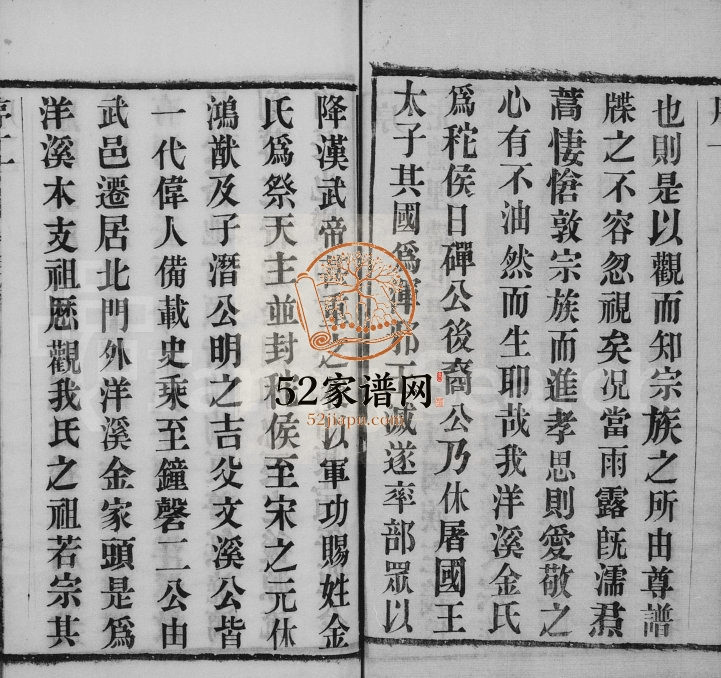 也則是以觀而知宗族之所由尊譜
牒之不容忽視矣况當雨露旣濡焄
蒿悽愴敦宗族而進孝思則愛敬之
心有不油然而生耶哉我洋溪金氏
爲秺侯日磾公後裔公乃休屠國王
太子其國爲渾邪王滅遂率部眾以
降漢武帝 重之 以軍功賜姓金
氏爲祭天主並封秺侯至宋之元休
鴻猷及子潛公明之吉父文溪公皆
一代偉人備載史乘至鐘磬二公由
武邑遷居北門外洋溪金家頭是爲
洋溪本支祖歷觀我氏之祖若宗其
52家谱网
52jiapu.com